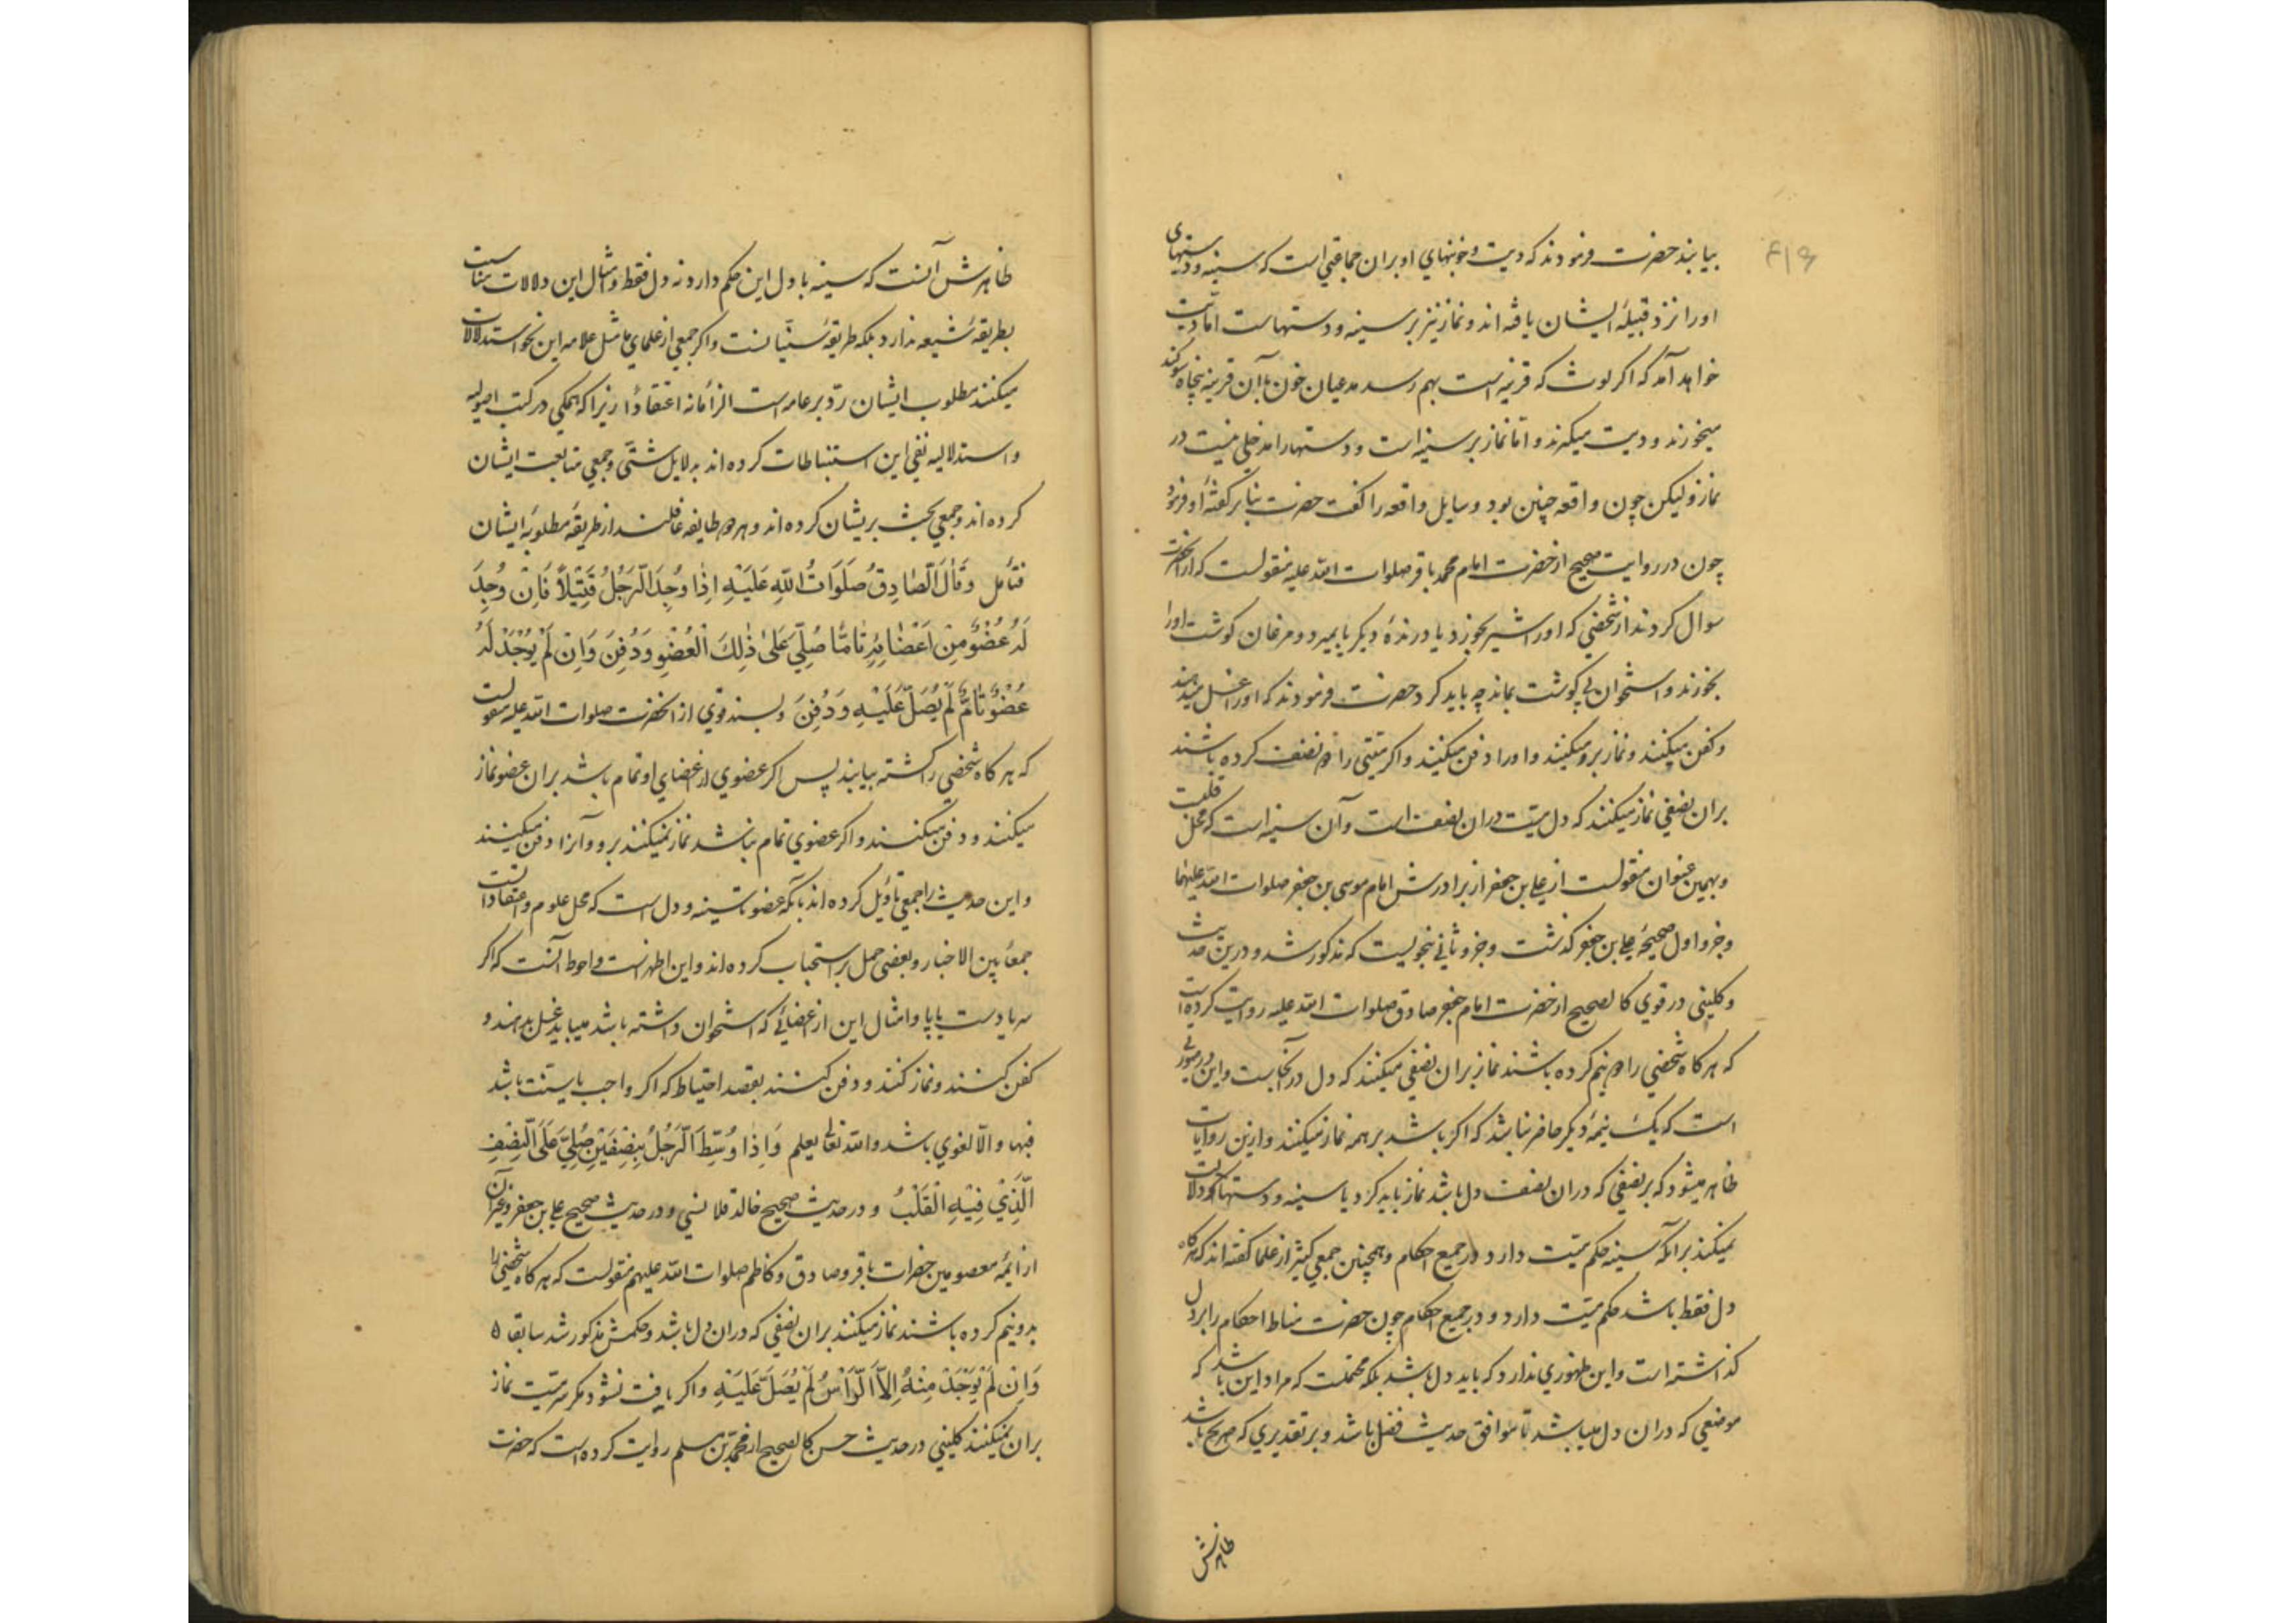 ۴۱۶
بیابند حضرت فرمودند که دیت و خونبهای او بران جماعتی است که سینه و دستهای
اورا نزد قبیلهٔ ایشان یافته اند و نماز نیز بر سینه و دستهاست اما دیت
خواهد آمد که اکر لوث که قرینه است بهم رسد مدعیان خون با آن قرینه پنجاه سوکند
میخورند و دیت میکیرند و اما نماز بر سینه است و دستها را مدخلی نیست در
نماز و لیکن چون واقعه چنین بود و سایل واقعه را کفت حضرت بنا بر کفتهٔ او فرمود
چون در روایت صحیح از حضرت امام محمد باقر صلوات الله علیه منقولست که از انحضرت
سوال کردند از شخصی که اورا شیر بخورد یا درندهٔ دیکر یا بمیرد و مرغان کوشت اورا
بخورند و استخوان بی کوشت بماند چه باید کرد حضرت فرمودند که اورا غسل میدهند
و کفن میکنند و نماز برو میکنند و اورا دفن میکنند و اکر میتی را دو نصف کرده باشند
بران نصفی نماز میکنند که دل میت دران نصف است و آن سینه است که محل قلبت
و بهمین عنوان منقولست از علی بن جعفر از برادرش امام موسی بن جعفر صلوات الله علیهما
و جزو اول صحیحهٔ علی بن جعفر کذشت و جزو ثانی بنحویست که مذکور شد و درین حدیث
و کلینی در قوی کالصحیح از حضرت امام جعفر صادق صلوات الله علیه روایت کرده است
که هرکاه شخصی را دو نیم کرده باشند نماز بران نصفی میکنند که دل در آنجاست و این در صورتی
است که یک نیمهٔ دیکر حاضر نباشد که اکر باشد بر همه نماز میکنند و ازین روایات
ظاهر میشود که بر نصفی که دران نصف دل باشد نماز باید کرد یا سینه و دستها که دلالت
نمیکند برانکه سینه حکم میت دارد در جمیع احکام و همچنین جمعی کثیر از علما کفته اند که هرکاه
دل فقط باشد حکم میت دارد و در جمیع احکام چون حضرت مناط احکام را بر دل
کذاشته است و این ظهوری ندارد که باید دل باشد بلکه محتملست که مراد این باشد که
موضعی که دران دل میباشد تا موافق حدیث فضل باشد و بر تقدیری که صریح باشد
ظاهرش
ظاهرش آنست که سینه با دل این حکم دارد نه دل فقط و امثال این دلالات مناسبت
بطریقهٔ شیعه ندارد بلکه طریقهٔ سنیانست و اکر جمعی از علمای ما مثل علامه این نحو استدلالات
میکنند مطلوب ایشان رد بر عامه است الزاما نه اعتقادا زیرا که همکی در کتب اصولیه
و استدلالیه نفی این استنباطات کرده اند بدلایل شتی و جمعی متابعت ایشان
کرده اند و جمعی بحث بریشان کرده اند و هر دو طایفه غافلند از طریقهٔ مطلوبهٔ ایشان
فتأمل وَقَالَ الصَّادِقُ صَلَوَاتُ اللّٰهِ عَلَيْهِ اِذَا وُجِدَ الرَّجُلُ قَتِيْلاً فَاِنْ وُجِدَ
لَهُ عُضْوٌ مِنْ اَعْضَائِهِ تَامًّا صُلِّيَ عَلَى ذٰلِكَ الْعُضْوِ وَدُفِنَ وَاِنْ لَمْ يُوْجَدْ لَهُ
عُضْوٌ تَامٌّ لَمْ يُصَلَّ عَلَيْهِ وَدُفِنَ و بسند قوی از انحضرت صلوات الله علیه منقولست
که هرکاه شخصی را کشته بیابند پس اکر عضوی از اعضای او تمام باشد بران عضو نماز
میکنند و دفن میکنند و اکر عضوی تمام نباشد نماز نمیکنند برو و آنرا دفن میکنند
و این حدیث را جمعی تأویل کرده اند بآنکه عضو تا سینه و دل است که محل علوم و اعتقاداتست
جمعا بین الاخبار و بعضی حمل بر استحباب کرده اند و این اظهر است و احوط آنست که اکر
سر یا دست یا پا و امثال این از اعضائی که استخوان داشته باشد میباید غسل بدهند و
کفن کنند و نماز کنند و دفن کنند بقصد احتیاط که اکر واجب یا سنت باشد
فبها و الا لغوی باشد والله تعالی یعلم وَاِذَا وُسِّطَ الرَّجُلُ بِنِصْفَيْنِ صُلِّيَ عَلَى النِّصْفِ
الَّذِيْ فِيْهِ الْقَلْبُ و در حدیث صحیح خالد قلانسی و در حدیث صحیح علی بن جعفر و غیر آن
از ائمهٔ معصومین حضرات باقر و صادق و کاظم صلوات الله علیهم منقولست که هرکاه شخصی را
بدو نیم کرده باشند نماز میکنند بران نصفی که دران دل باشد و حکمش مذکور شد سابقا ه
وَاِنْ لَمْ يُوْجَدْ مِنْهُ اِلاَّ الرَّاْسُ لَمْ يُصَلَّ عَلَيْهِ و اکر یافت نشود مکر سر میت نماز
بران نمیکنند کلینی در حدیث حسن کالصحیح از محمد بن مسلم روایت کرده است که حضرت